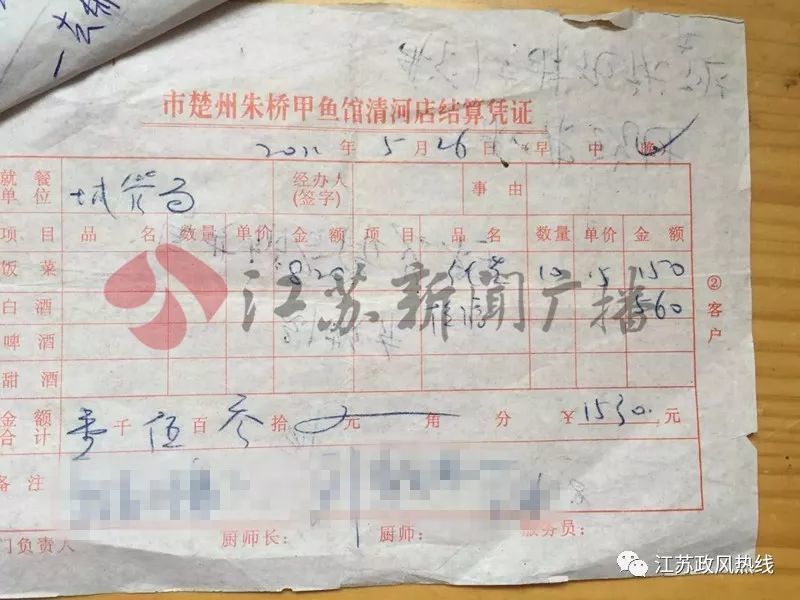 市楚州朱桥甲鱼馆清河店结算凭证
2012年5月26日 早 中 晚
就餐单位 城管局 经办人(签字) 事由
项目 品名 数量 单价 金额 项目 品名 数量 单价 金额
饭菜 820 10 15 150
白酒 560
啤酒
甜酒
②客户
金额合计 壹千伍百叁拾元角分 ¥1530.元
备注
门负责人 厨师长: 厨师: 服务员:
江苏新闻广播
江苏政风热线